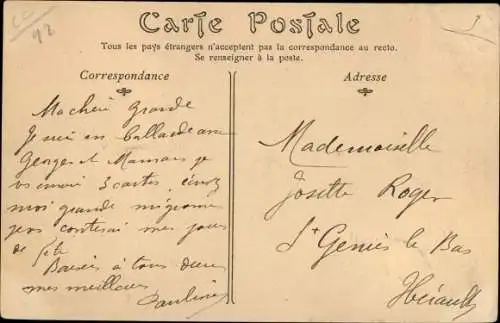 Carte Postale
Tous les pays étrangers n'acceptent pas la correspondance au recto.
Se renseigner à la poste.
Correspondance
Adresse
Ma chère grande
Je suis en
Georges et Maman je
vs envoi 3 cartes
moi grande mignonne
mes
de fête
Baisers à tous deux
mes meilleurs
Pauline
Mademoiselle
Josette Roger
St Geniès le Bas
Hérault